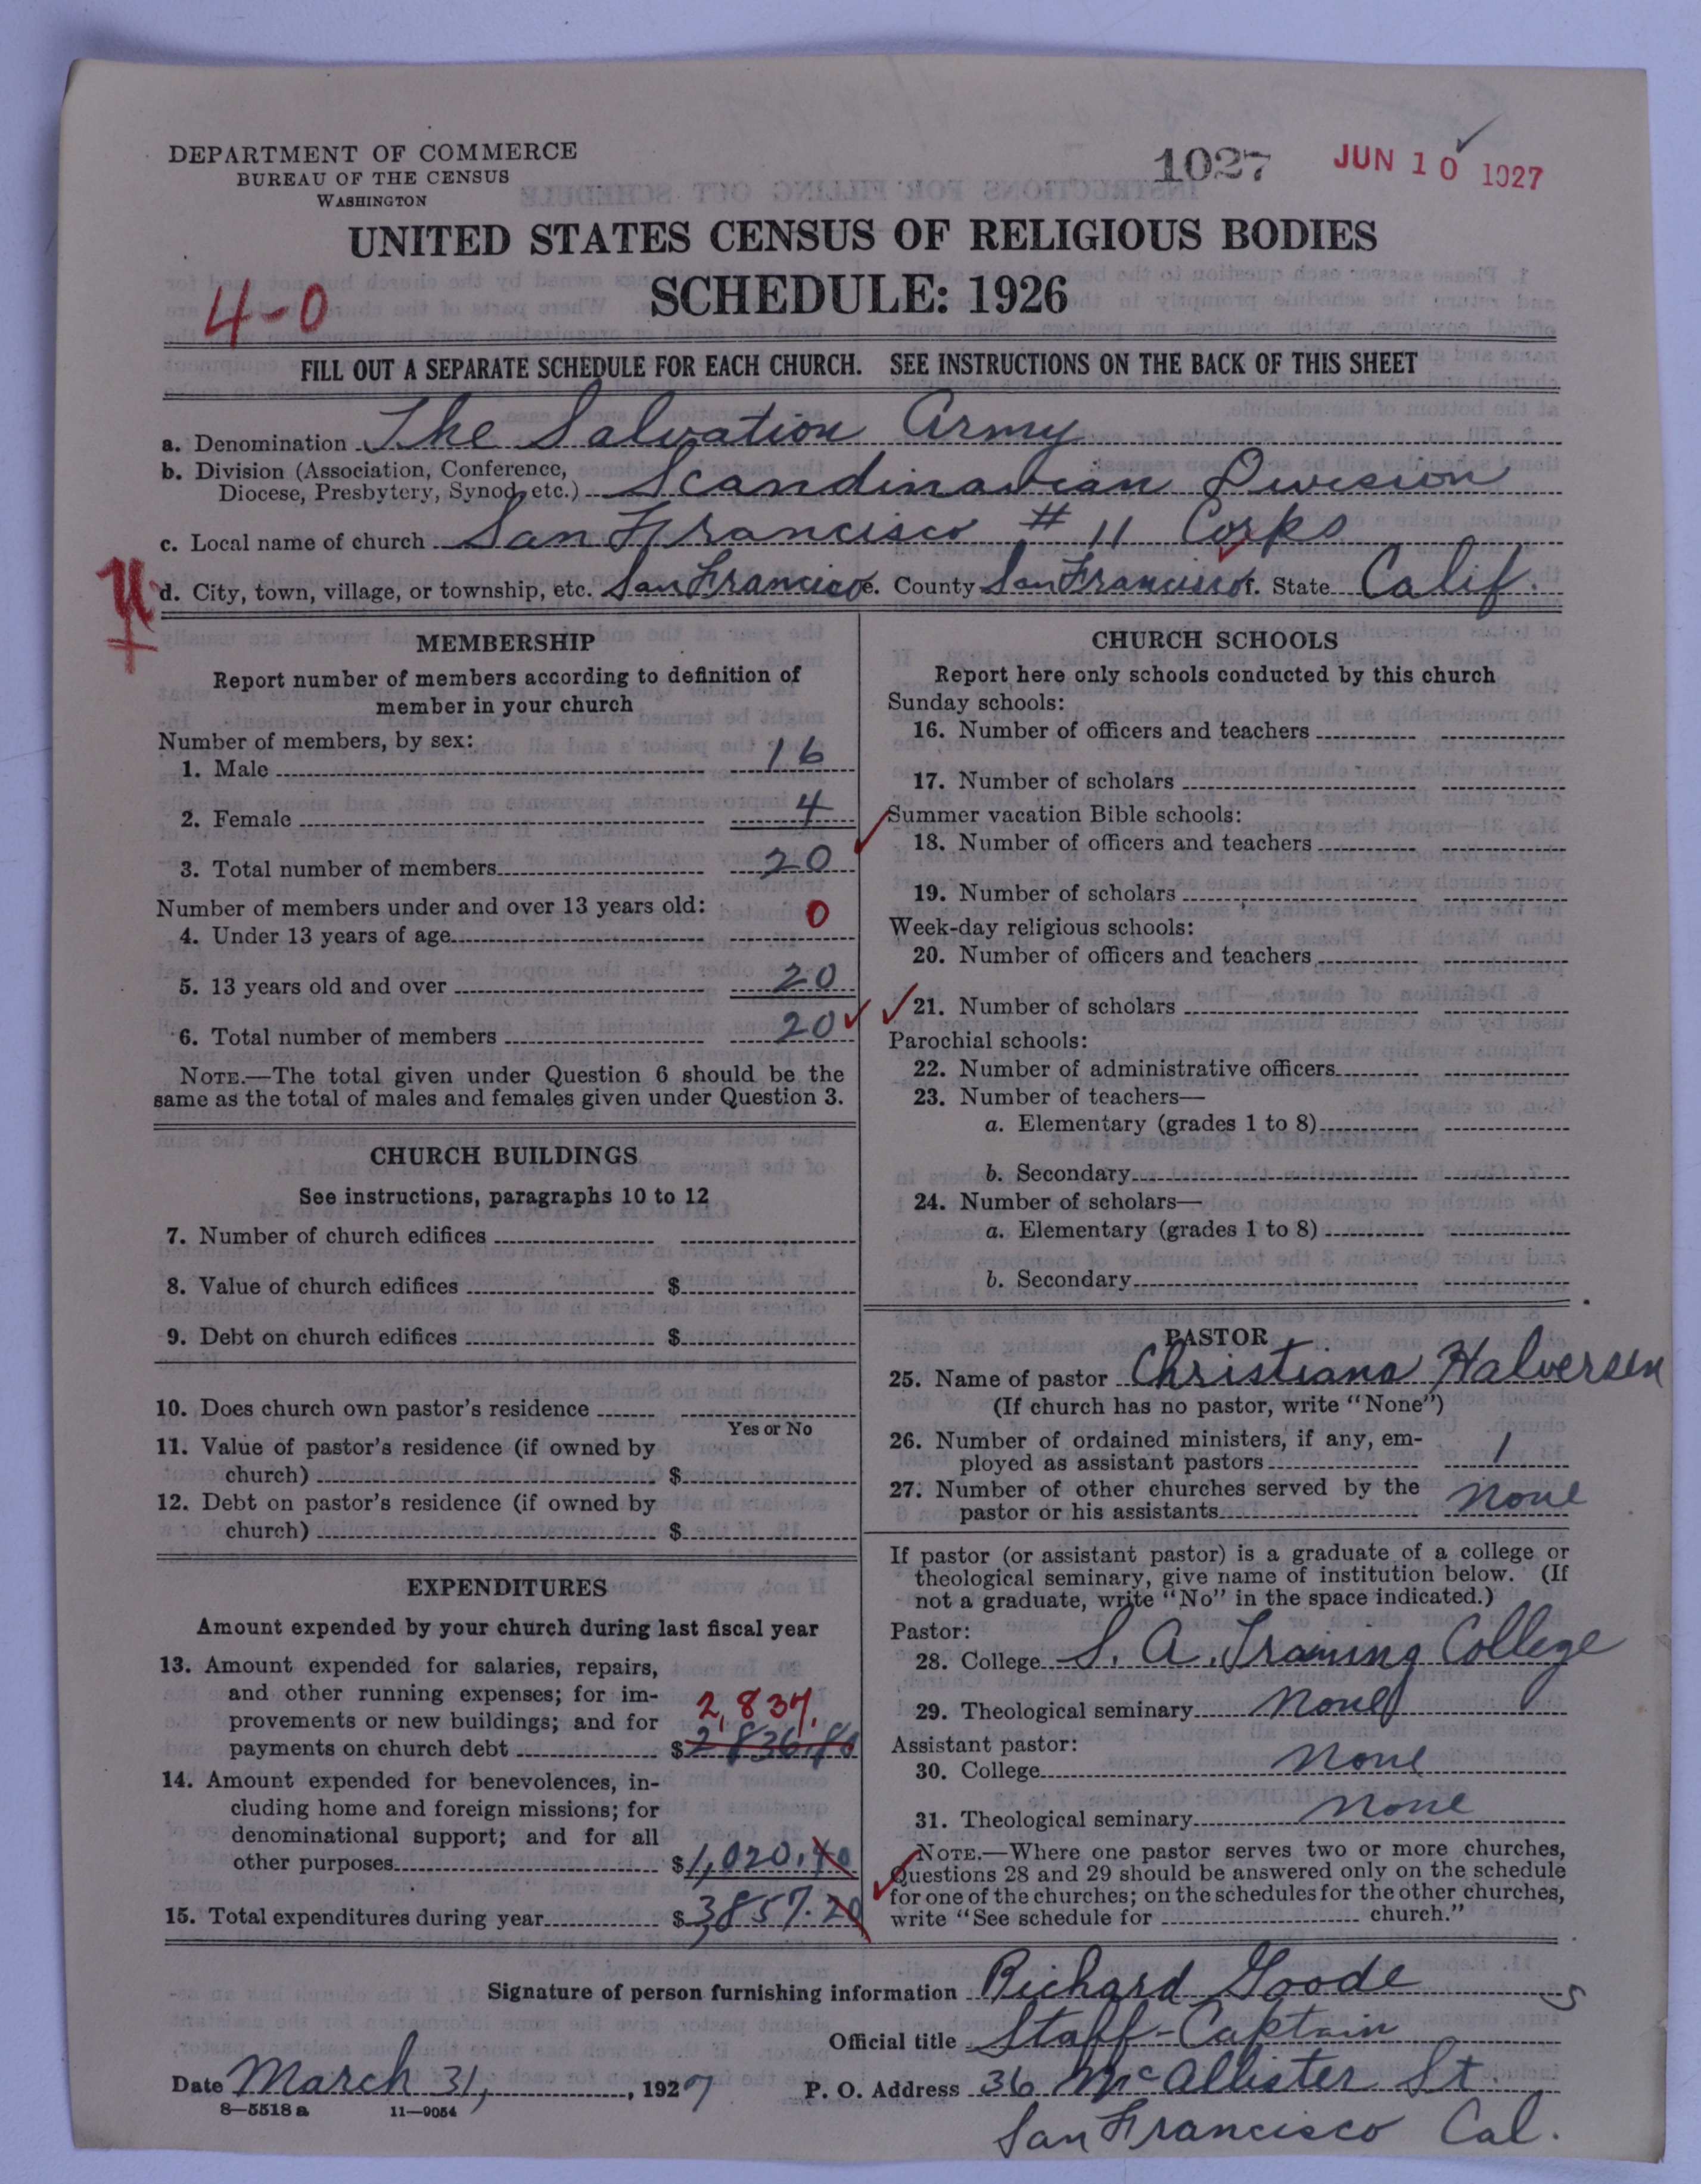 DEPARTMENT OF COMMERCE
BUREAU OF THE CENSUS
WASHINGTON
1027
JUN 10 1927
UNITED STATES CENSUS OF RELIGIOUS BODIES
SCHEDULE: 1926
4-0
FILL OUT A SEPARATE SCHEDULE FOR EACH CHURCH. SEE INSTRUCTIONS ON THE BACK OF THIS SHEET
a. Denomination The Salvation Army
b. Division (Association, Conference,
Diocese, Presbytery, Synod, etc.) Scandinavian Division
c. Local name of church San Francisco # 11 Corps
d. City, town, village, or township, etc. San Francisco e. County San Francisco f. State Calif.
MEMBERSHIP
Report number of members according to definition of
member in your church
Number of members, by sex:
1. Male 16
2. Female 4
3. Total number of members 20
Number of members under and over 13 years old:
4. Under 13 years of age 0
5. 13 years old and over 20
6. Total number of members 20
NOTE.—The total given under Question 6 should be the
same as the total of males and females given under Question 3.
CHURCH BUILDINGS
See instructions, paragraphs 10 to 12
7. Number of church edifices
8. Value of church edifices $
9. Debt on church edifices $
10. Does church own pastor's residence
Yes or No
11. Value of pastor's residence (if owned by
church) $
12. Debt on pastor's residence (if owned by
church) $
EXPENDITURES
Amount expended by your church during last fiscal year
13. Amount expended for salaries, repairs,
and other running expenses; for im-
provements or new buildings; and for 2,837.
payments on church debt $2836.80
14. Amount expended for benevolences, in-
cluding home and foreign missions; for
denominational support; and for all
other purposes $1,020.40
15. Total expenditures during year $3857.20
CHURCH SCHOOLS
Report here only schools conducted by this church
Sunday schools:
16. Number of officers and teachers
17. Number of scholars
Summer vacation Bible schools:
18. Number of officers and teachers
19. Number of scholars
Week-day religious schools:
20. Number of officers and teachers
21. Number of scholars
Parochial schools:
22. Number of administrative officers
23. Number of teachers—
a. Elementary (grades 1 to 8)
b. Secondary
24. Number of scholars—
a. Elementary (grades 1 to 8)
b. Secondary
PASTOR
25. Name of pastor Christiana Halversen
(If church has no pastor, write "None")
26. Number of ordained ministers, if any, em-
ployed as assistant pastors 1
27. Number of other churches served by the
pastor or his assistants None
If pastor (or assistant pastor) is a graduate of a college or
theological seminary, give name of institution below. (If
not a graduate, write "No" in the space indicated.)
Pastor:
28. College S. A. Training College
29. Theological seminary None
Assistant pastor:
30. College None
31. Theological seminary None
NOTE.—Where one pastor serves two or more churches,
Questions 28 and 29 should be answered only on the schedule
for one of the churches; on the schedules for the other churches,
write "See schedule for church."
Signature of person furnishing information Richard Goode
Official title Staff-Captain
Date March 31, 1927 P. O. Address 36 McAllister St.
8—5518 a 11—9054
San Francisco Cal.